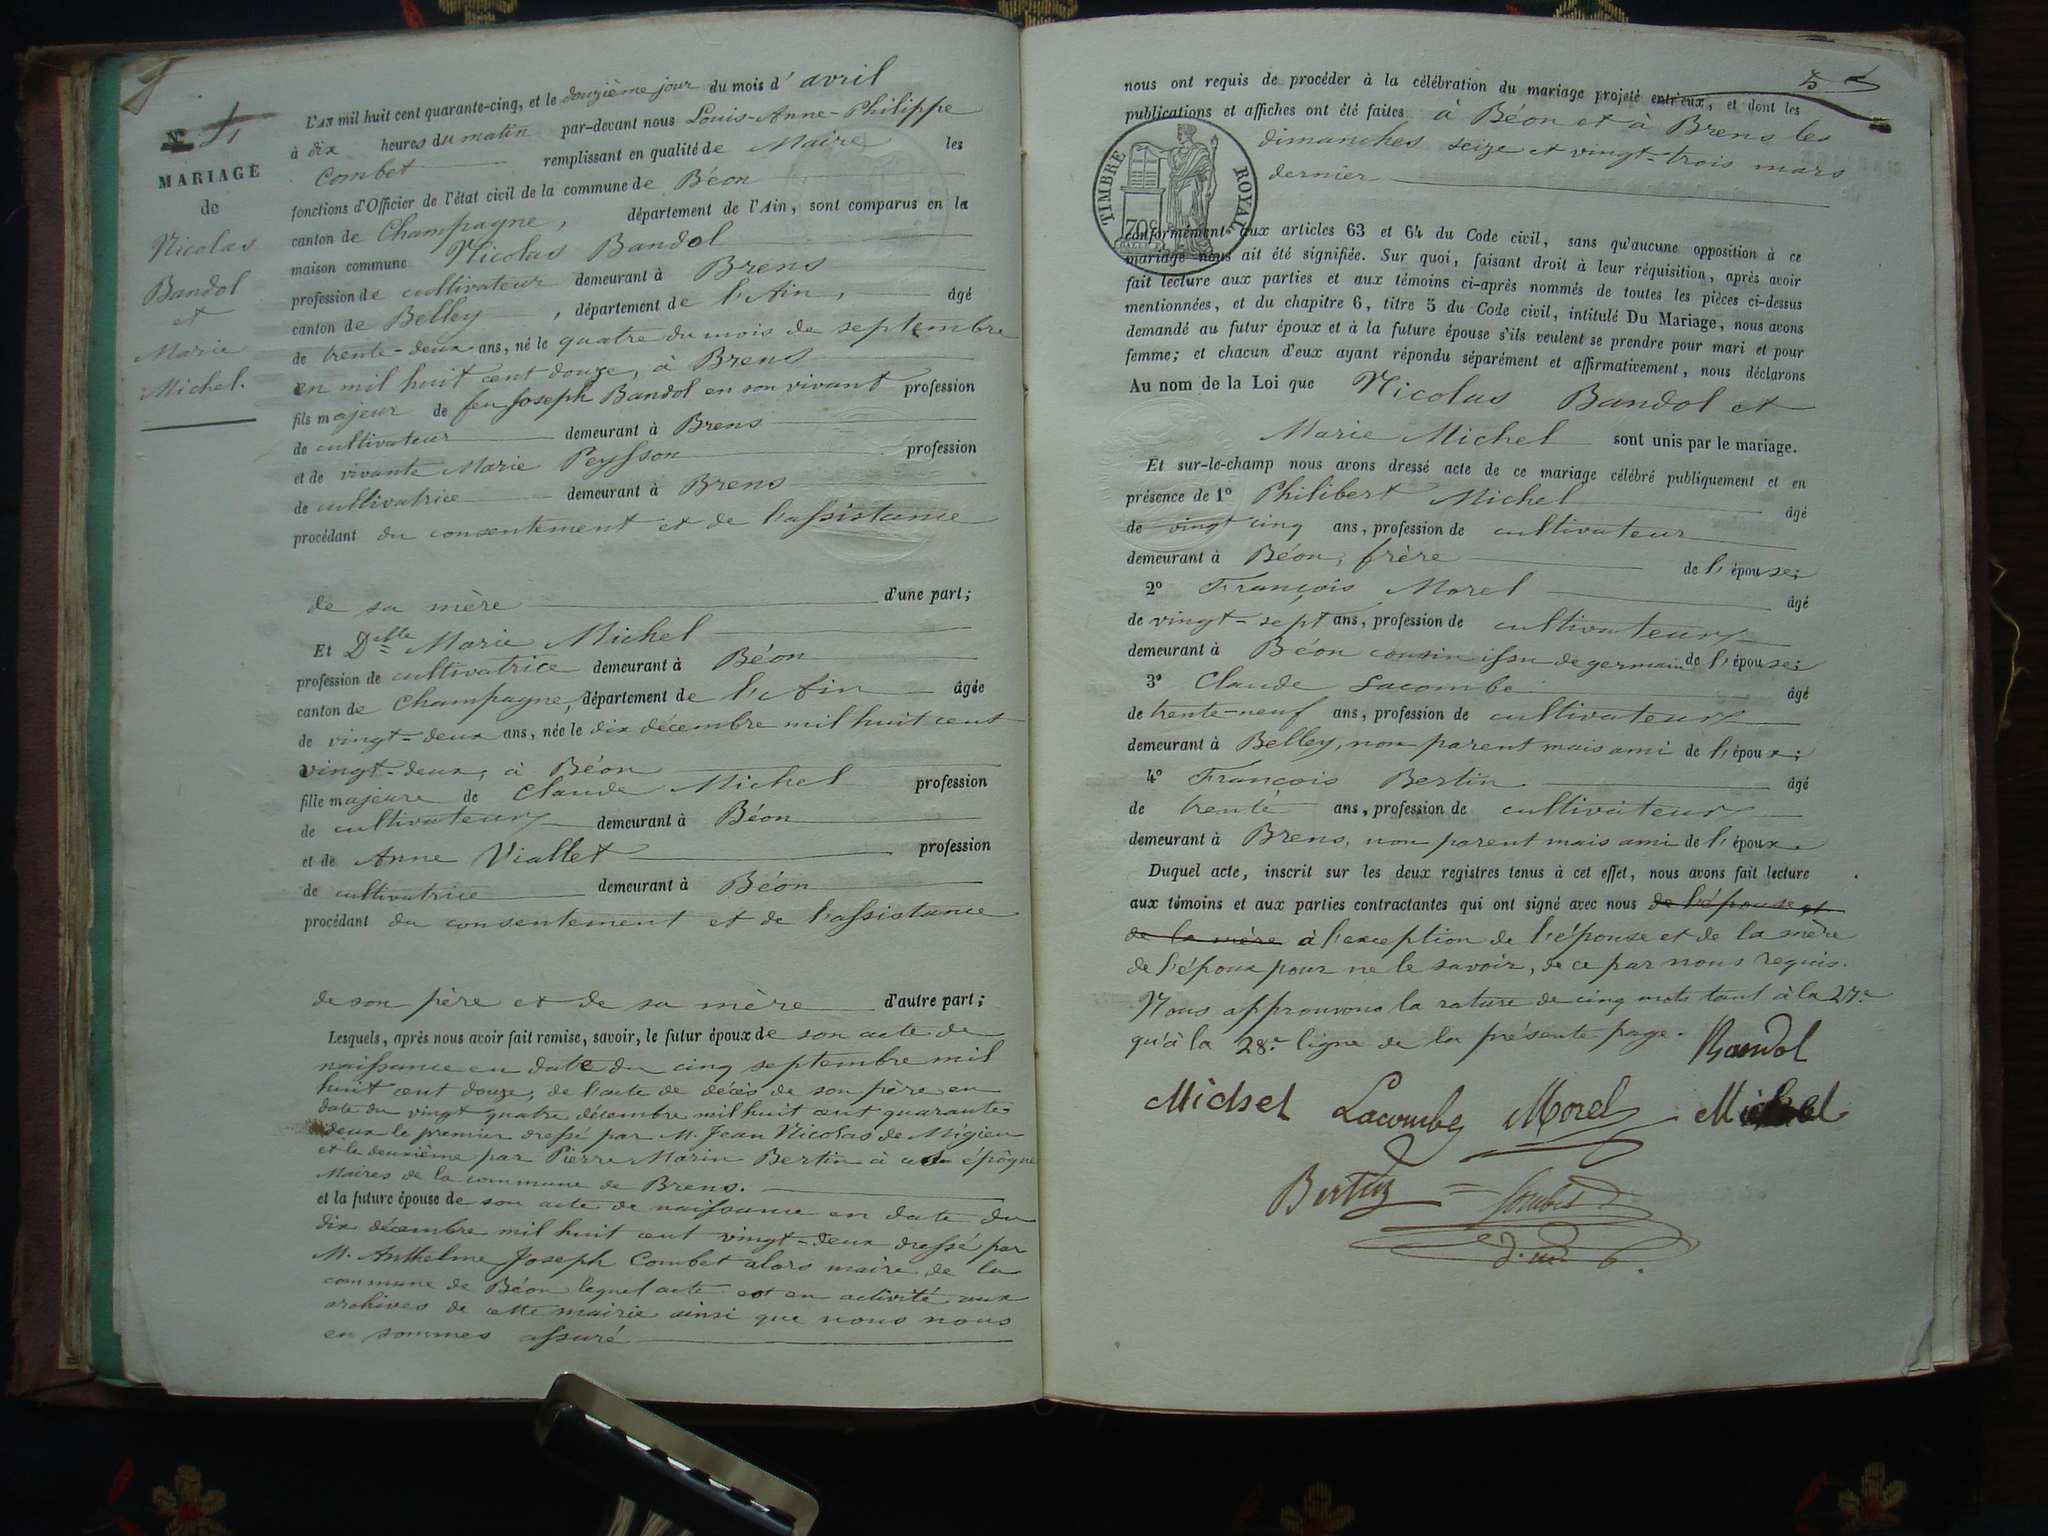 N.º 4
MARIAGE
de
Nicolas
Bandol
et
Marie
Michel.
L'AN mil huit cent quarante-cinq, et le douzième jour du mois d'avril
à dix heures du matin par-devant nous Louis-Anne-Philippe
Combet remplissant en qualité de Maire les
fonctions d'Officier de l'état civil de la commune de Béon
canton de Champagne, département de l'Ain, sont comparus en la
maison commune Nicolas Bandol
profession de cultivateur demeurant à Brens
canton de Belley, département de l'Ain, âgé
de trente-deux ans, né le quatre du mois de septembre
en mil huit cent douze, à Brens
fils majeur de feu Joseph Bandol en son vivant profession
de cultivateur demeurant à Brens
et de vivante Marie Peysson profession
de cultivatrice demeurant à Brens
procédant du consentement et de l'assistance
de sa mère d'une part;
Et Delle Marie Michel
profession de cultivatrice demeurant à Béon
canton de Champagne, département de l'Ain âgée
de vingt-deux ans, née le dix décembre mil huit cent
vingt-deux, à Béon
fille majeure de Claude Michel profession
de cultivateur demeurant à Béon
et de Anne Viallet profession
de cultivatrice demeurant à Béon
procédant du consentement et de l'assistance
de son père et de sa mère d'autre part;
Lesquels, après nous avoir fait remise, savoir, le futur époux de son acte de
naissance en date du cinq septembre mil
huit cent douze, de l'acte de décès de son père en
date du vingt quatre décembre mil huit cent quarante-
deux le premier dressé par M. Jean Nicolas de Migieu
et le deuxième par Pierre Marin Bertin à cette époque
Maires de la commune de Brens.
et la future épouse de son acte de naissance en date du
dix décembre mil huit cent vingt-deux dressé par
M. Anthelme Joseph Combet alors maire de la
commune de Béon lequel acte est en activité aux
archives de cette mairie ainsi que nous nous
en sommes assuré
5
nous ont requis de procéder à la célébration du mariage projeté entr'eux, et dont les
publications et affiches ont été faites à Béon et à Brens les
dimanches seize et vingt-trois mars
dernier
TIMBRE ROYAL
70c
conformément aux articles 63 et 64 du Code civil, sans qu'aucune opposition à ce
mariage nous ait été signifiée. Sur quoi, faisant droit à leur réquisition, après avoir
fait lecture aux parties et aux témoins ci-après nommés de toutes les pièces ci-dessus
mentionnées, et du chapitre 6, titre 5 du Code civil, intitulé Du Mariage, nous avons
demandé au futur époux et à la future épouse s'ils veulent se prendre pour mari et pour
femme; et chacun d'eux ayant répondu séparément et affirmativement, nous déclarons
Au nom de la Loi que Nicolas Bandol et
Marie Michel sont unis par le mariage.
Et sur-le-champ nous avons dressé acte de ce mariage célébré publiquement et en
présence de 1º Philibert Michel âgé
de vingt cinq ans, profession de cultivateur
demeurant à Béon, frère de l'épouse;
2º François Morel âgé
de vingt-sept ans, profession de cultivateur
demeurant à Béon cousin issu de germain de l'épouse;
3º Claude Lacombe âgé
de trente-neuf ans, profession de cultivateur
demeurant à Belley, non parent mais ami de l'époux;
4º François Bertin âgé
de trente ans, profession de cultivateur
demeurant à Brens, non parent mais ami de l'époux.
Duquel acte, inscrit sur les deux registres tenus à cet effet, nous avons fait lecture
aux témoins et aux parties contractantes qui ont signé avec nous de l'épouse et
de la mère à l'exception de l'épouse et de la mère
de l'époux pour ne le savoir, de ce par nous requis.
Nous approuvons la rature de cinq mots tant à la 27e
qu'à la 28e ligne de la présente page. Bandol
Michel Lacombe Morel Michel
Bertin Combet